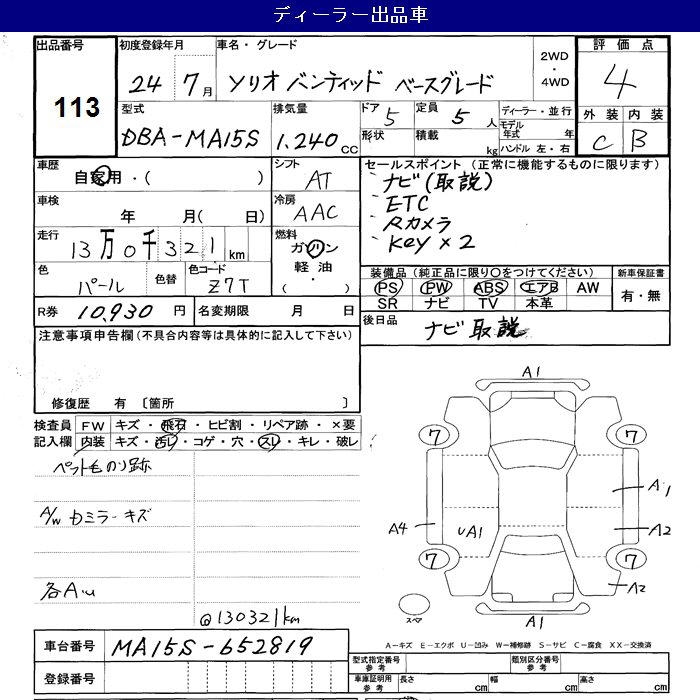 ディーラー出品車
出品番号
113
初度登録年月
24 7月
車名・グレード
ソリオ バンディッド ベースグレード
2WD
・
4WD
評価点
4
外装 内装
C B
型式
DBA-MA15S
排気量
1.240cc
ドア 5
形状
定員 5人
積載 kg
ディーラー・並行
モデル年式 年
ハンドル 左・右
車歴
自家用・( )
シフト
AT
車検
年 月( 日)
冷房
AAC
走行
13万0千321km
燃料
ガソリン
軽油・
( )
色
パール
色替
色コード
Z7T
R券 10,930円
名変期限 月 日
セールスポイント (正常に機能するものに限ります)
・ナビ(取説)
・ETC
・Rカメラ
・Key×2
装備品(純正品に限り〇をつけてください)
PS PW ABS エアB AW
SR ナビ TV 本革
新車保証書
有・無
後日品 ナビ取説
注意事項申告欄(不具合内容等は具体的に記入して下さい)
修復歴 有 〔箇所 〕
検査員記入欄
FW キズ・飛石・ヒビ割・リペア跡・×要
内装 キズ・汚レ・コゲ・穴・スレ・キレ・破レ
ペット毛のり跡
A/W カミラーキズ
各A.u
@130321km
A1
7 7
A4
UA1
A1
A2
7 7
A2
スペア
A1
A-キズ E-エクボ U-凹み W-補修跡 S-サビ C-腐食 XX-交換済
車台番号 MA15S-652819
登録番号
型式指定番号 参考
類別区分番号 参考
車庫証明用 参考
長さ cm
幅 cm
高さ cm